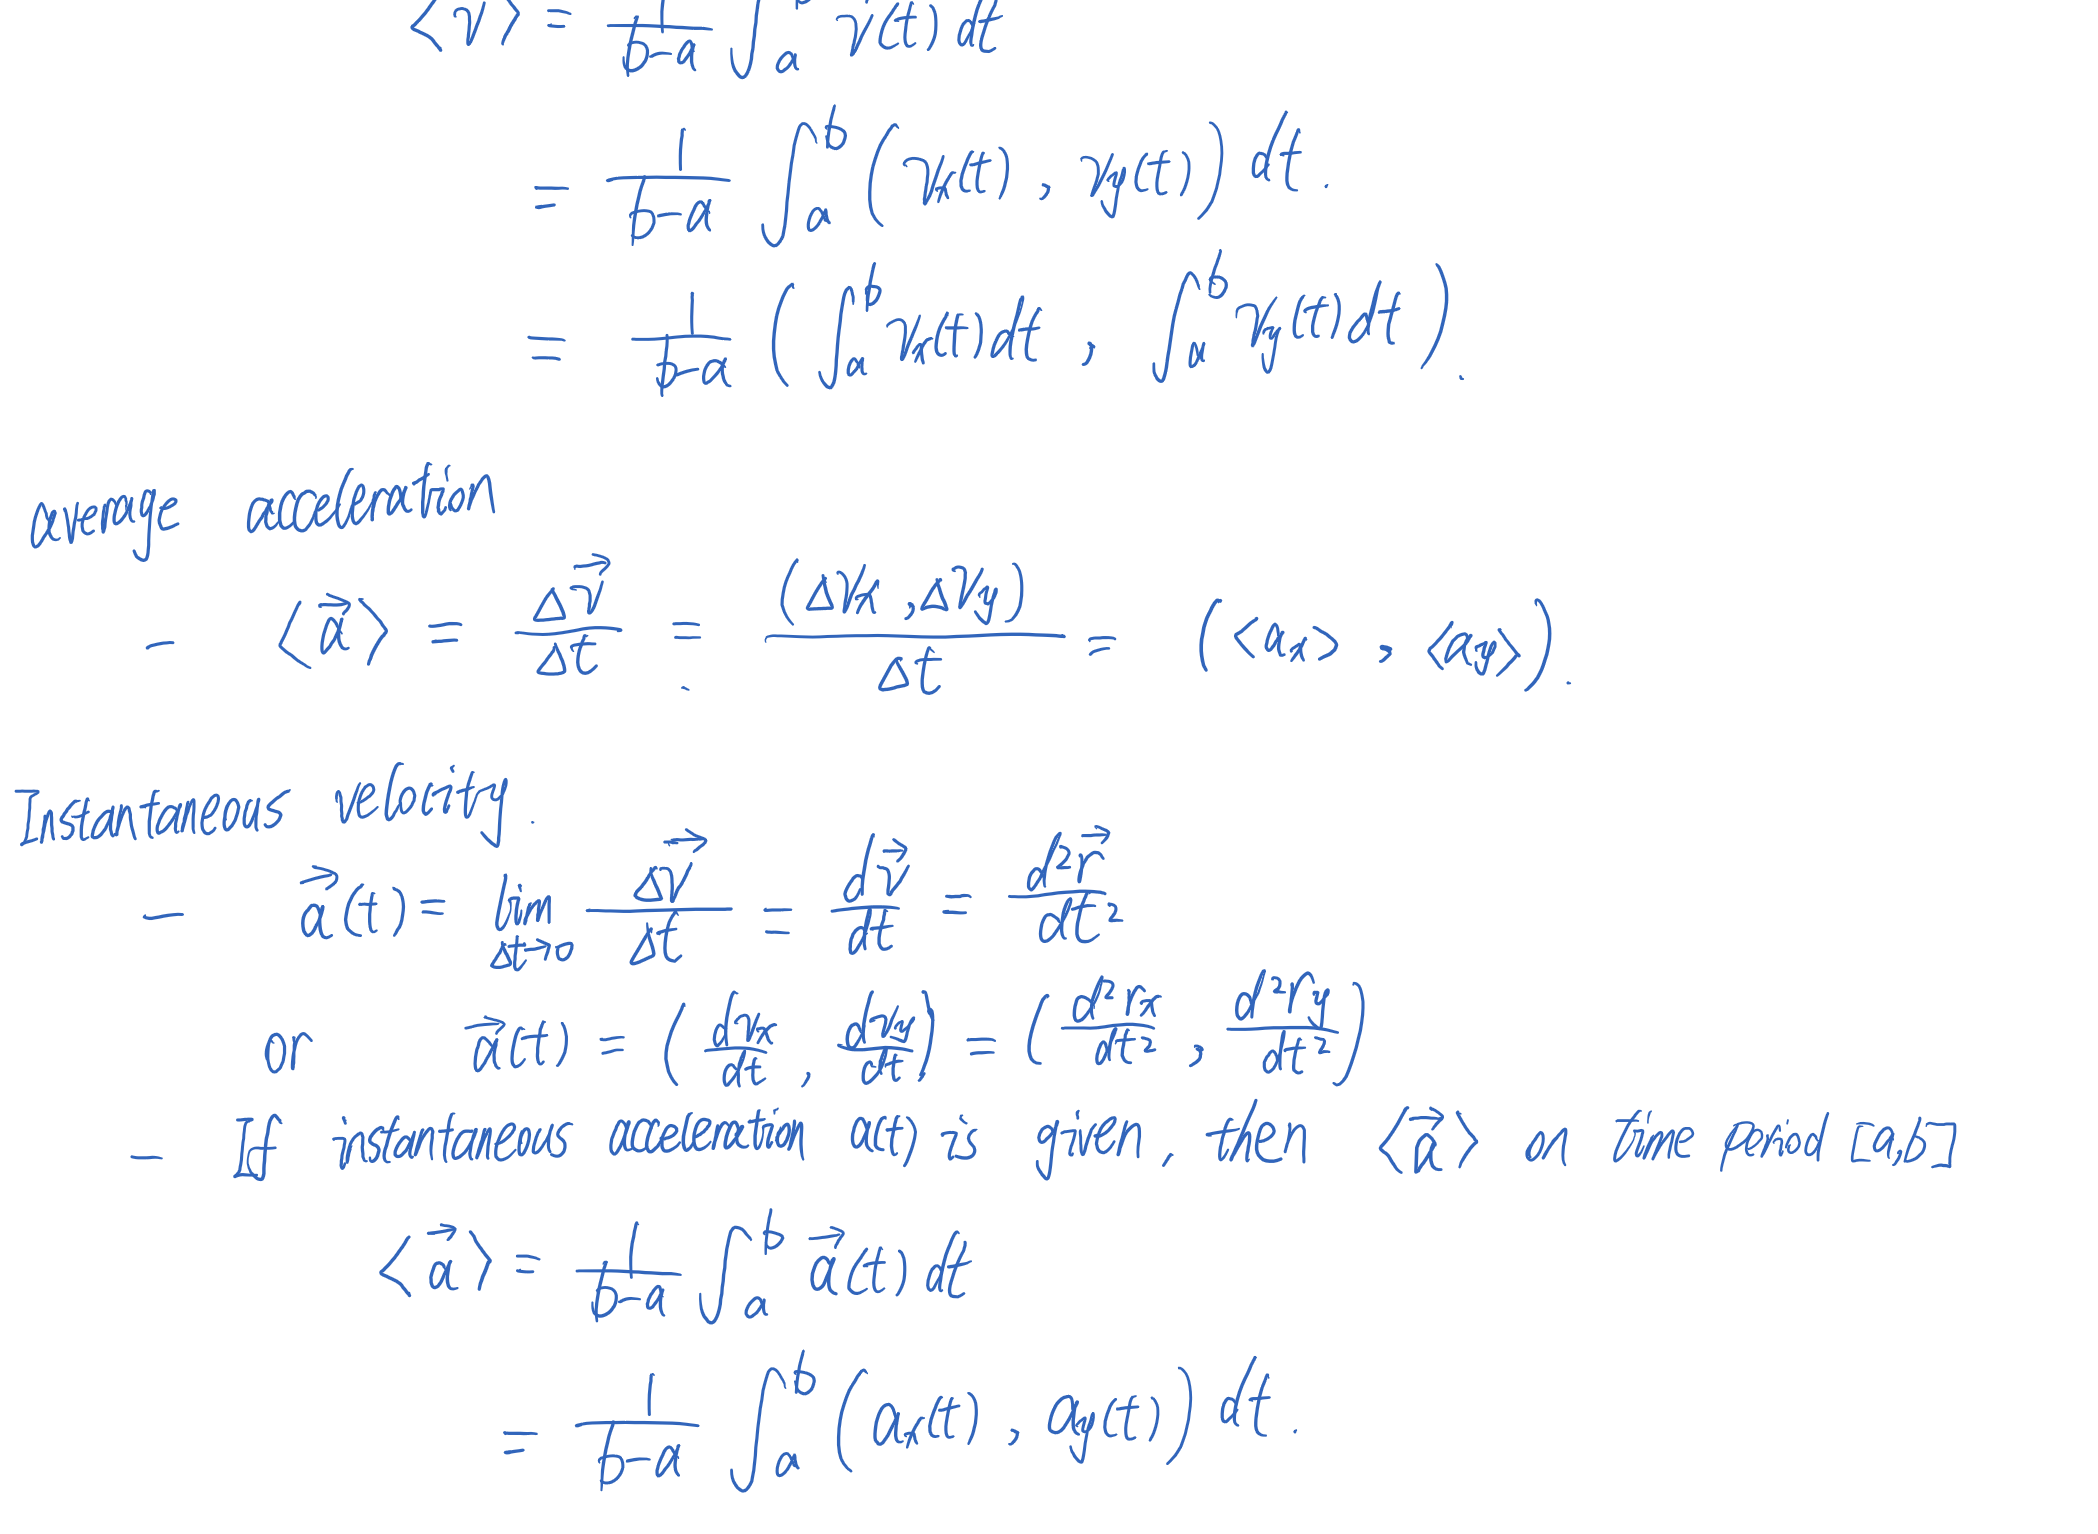 ⟨v⟩ = 1/(b-a) ∫_a^b v(t) dt
= 1/(b-a) ∫_a^b (v_x(t), v_y(t)) dt.
= 1/(b-a) (∫_a^b v_x(t)dt, ∫_a^b v_y(t)dt).
average acceleration
- ⟨a⃗⟩ = Δv⃗/Δt = (Δv_x, Δv_y)/Δt = (⟨a_x⟩, ⟨a_y⟩).
Instantaneous velocity.
- a⃗(t) = lim_{Δt→0} Δv⃗/Δt = dv⃗/dt = d²r⃗/dt²
or a⃗(t) = (dv_x/dt, dv_y/dt) = (d²r_x/dt², d²r_y/dt²)
- If instantaneous acceleration a(t) is given, then ⟨a⃗⟩ on time period [a,b]
⟨a⃗⟩ = 1/(b-a) ∫_a^b a⃗(t) dt
= 1/(b-a) ∫_a^b (a_x(t), a_y(t)) dt.